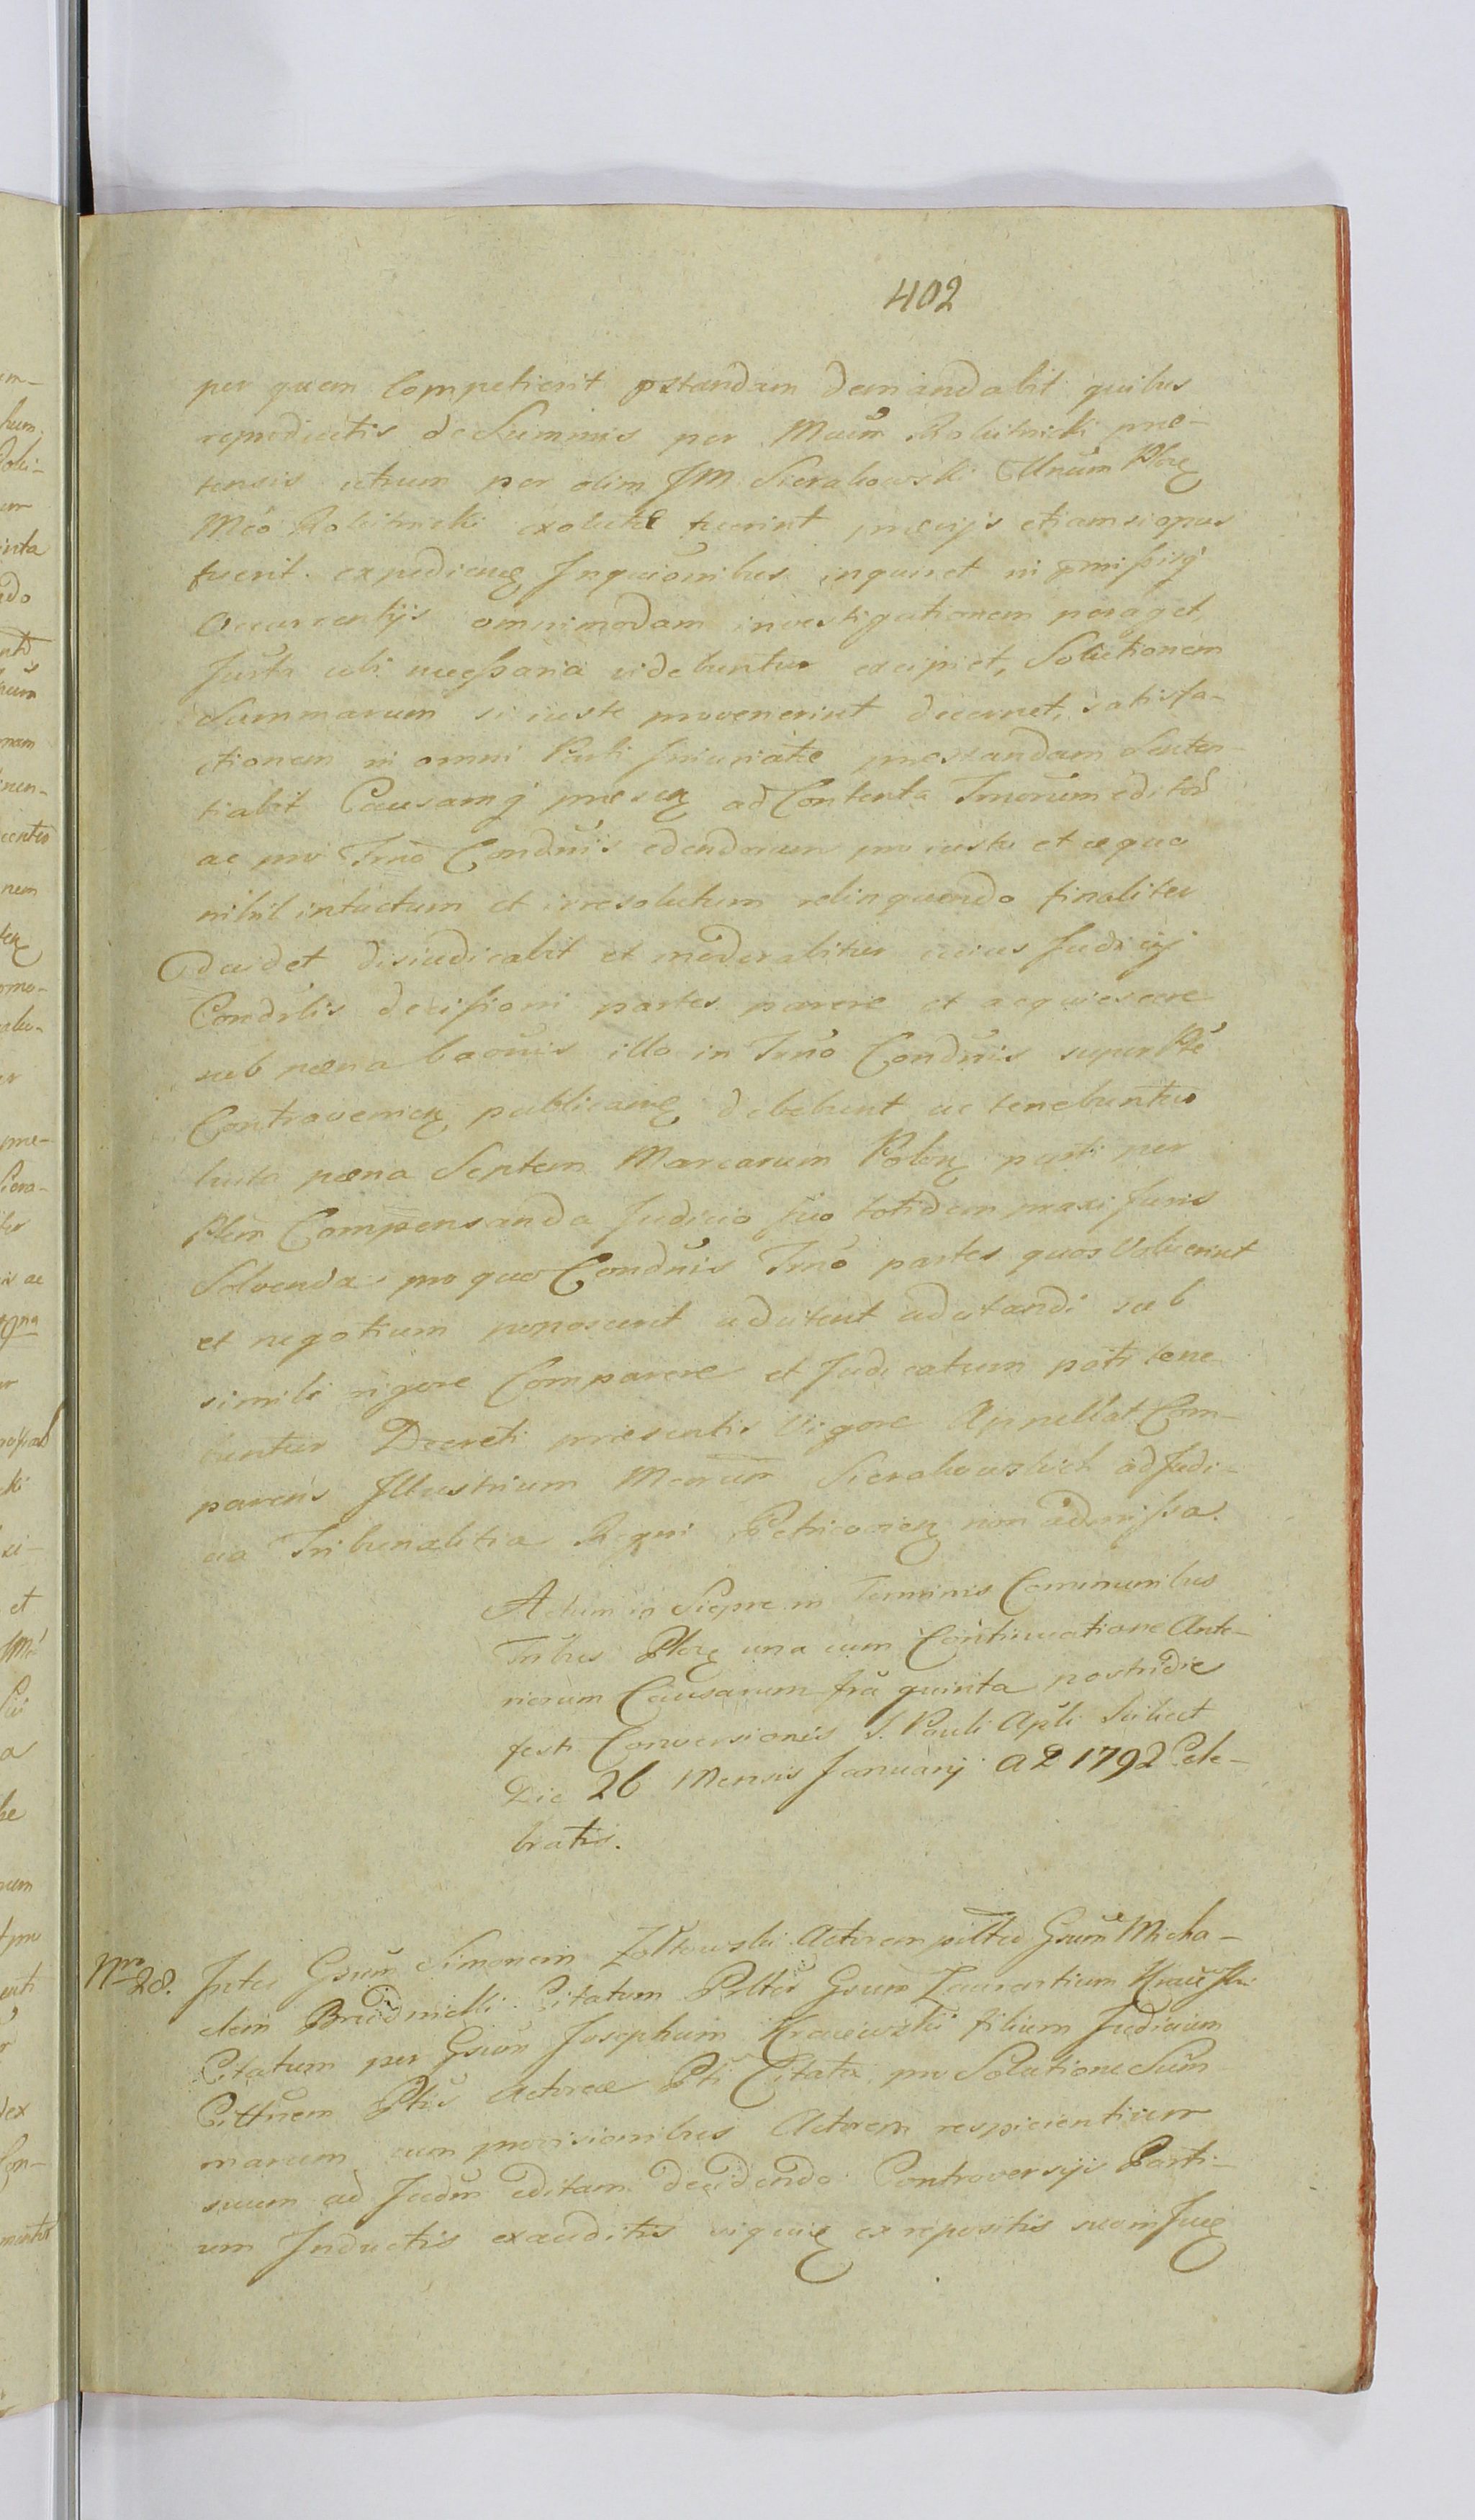 402
per quem Competierit pstandam demandabit quibus
reproductis de Summis per Mcum Rokitnicki præ-
tensis utrum per olim JM Sierakowski Unum Plocz
Mco Rokitnicki exolutæ fuerint prævijs etiam si opus
fuerit expedien Inqusitionibus inquiret in pmissisq
Occurrentijs omnimodam investigationem peraget,
Jurta ubi necessaria videbuntur excipiet, Solutionem
Summarum si juste provenerint decernet, satisfa-
ctionem in omni Parti Iniuriatæ præstandam Senten-
tiabit Causamq præsen ad Contenta Tmorum editor
ac pro Tmo Condnis edendorum pro justo et æquo
nihil intactum et irresolutum relinquendo finaliter
Decidet disiudicabit et moderabitur cuius Judicij
Condnlis decissioni partes parere et acquiescere
sub pæna banonis illo in Tmo Condnis super Pte
Contravenien publican debebunt ac tenebuntur
luita pæna Septem Marcarum Polon parti per
Ptem Compensanda Judicio suo totidem maxi Juris
Solvenda pro quo Condnis Tmo partes quos Voluerint
et negotium poposcerit adcitent adcitandi sub
simili rigore Comparere et Judicatum pati tene
buntur Decreti præsentis Vigore Appellat Com-
parens Illustrium Mcorum Sierakowskich ad Judi-
cia Tribunalitia Regni Petricovien non admissa.
Actum in Sierpc in Terminis Communibus
Tribus Plocen una cum Continuatione Ante-
riorum Causarum fria quinta postridie
festi Conversionis S. Pauli Apli Scilicet
Die 26 Mensis Januarij A D 1792 Cele-
bratis.
Nro 28. Inter Gsum Simonem Zołtowski Actorem plter Gsum Micha-
elem Citatum Pltis Gsum Laurentium
Citatum per Gsum Josephum Kraiewski filium Judicium
Ptis Actoreæ Pti Citatæ pro Solutione Sum
marum cum provisionibus Actorem respicientium
suum ad Judm editam decidendo Controversijs Parti-
um Inductis exauditis ex repositis